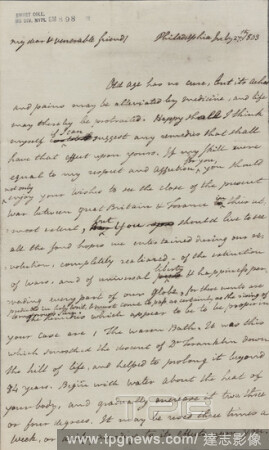 my dear & venerable friend
Philadelphia July 27th 1803
Old age has no cure, but its aches
and pains may be alleviated by medicine, and life
may thereby be protracted. Happy shall I think
myself if I can suggest any remedies that shall
have that effect upon yours. If my skill were
equal to my respect and affection for you, you should
not only enjoy your wishes to see the close of the present
war between great Britain & France
but you should live to see
all the fond hopes we entertained during our re,,
volution, completely realised, of the extinction
of wars, and of universal liberty & happiness per,,
vading every part of our Globe, for these events are
which appear to be to be proper in
your case are 1 The Warm Bath. It was this
which smoothed the descent of Dr Franklin down
the hill of life, and helped to prolong it beyond
84 years. Begin with water about the heat of
your body, and gradually increase it two three
or four degrees. It may be used three times a
week, or
www.tpgnews.com | 達志影像
TPG